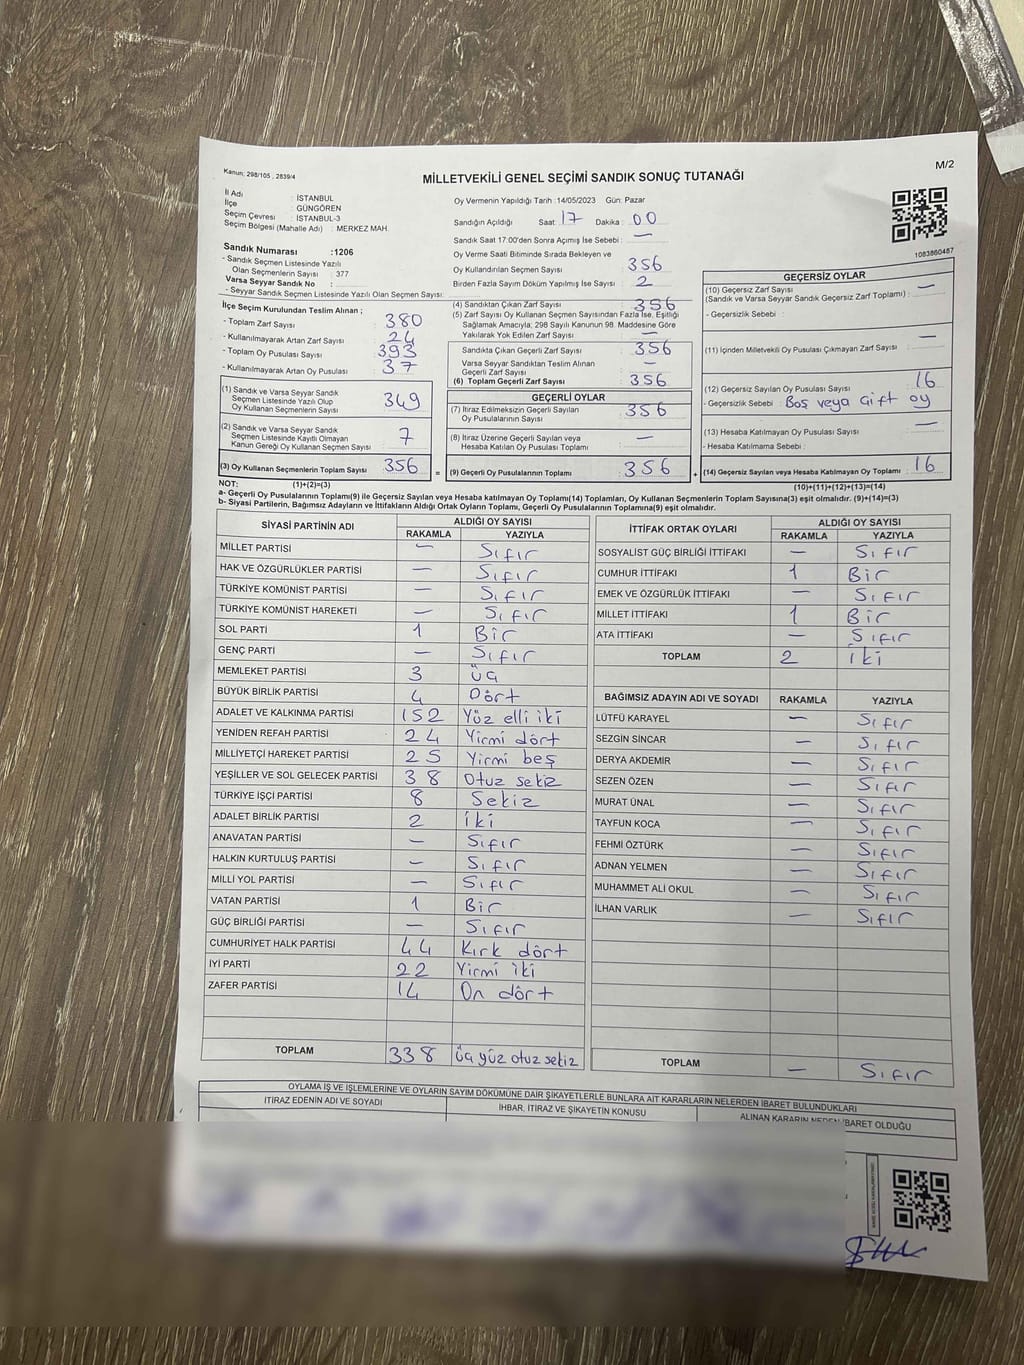 M/2
Kanun: 298/105 , 2839/4
MİLLETVEKİLİ GENEL SEÇİMİ SANDIK SONUÇ TUTANAĞI
İl Adı : İSTANBUL
İlçe : GÜNGÖREN
Seçim Çevresi : İSTANBUL-3
Seçim Bölgesi (Mahalle Adı) : MERKEZ MAH.
Oy Vermenin Yapıldığı Tarih :14/05/2023 Gün: Pazar
Sandığın Açıldığı Saat: 17 Dakika : 00
Sandık Saat 17:00'den Sonra Açımış İse Sebebi : —
Oy Verme Saati Bitiminde Sırada Bekleyen ve
Oy Kullandırılan Seçmen Sayısı : 356
Birden Fazla Sayım Döküm Yapılmış İse Sayısı : 2
1083860487
Sandık Numarası :1206
- Sandık Seçmen Listesinde Yazılı
Olan Seçmenlerin Sayısı : 377
Varsa Seyyar Sandık No :
- Seyyar Sandık Seçmen Listesinde Yazılı Olan Seçmen Sayısı:
İlçe Seçim Kurulundan Teslim Alınan ;
- Toplam Zarf Sayısı : 380
- Kullanılmayarak Artan Zarf Sayısı : 24
- Toplam Oy Pusulası Sayısı : 393
- Kullanılmayarak Artan Oy Pusulası : 37
(1) Sandık ve Varsa Seyyar Sandık
Seçmen Listesinde Yazılı Olup
Oy Kullanan Seçmenlerin Sayısı 349
(2) Sandık ve Varsa Seyyar Sandık
Seçmen Listesinde Kayıtlı Olmayan
Kanun Gereği Oy Kullanan Seçmen Sayısı 7
(3) Oy Kullanan Seçmenlerin Toplam Sayısı 356 =
(4) Sandıktan Çıkan Zarf Sayısı : 356
(5) Zarf Sayısı Oy Kullanan Seçmen Sayısından Fazla İse, Eşitliği
Sağlamak Amacıyla; 298 Sayılı Kanunun 98. Maddesine Göre
Yakılarak Yok Edilen Zarf Sayısı : —
Sandıkta Çıkan Geçerli Zarf Sayısı 356
Varsa Seyyar Sandıktan Teslim Alınan
Geçerli Zarf Sayısı —
(6) Toplam Geçerli Zarf Sayısı 356
GEÇERLİ OYLAR
(7) İtiraz Edilmeksizin Geçerli Sayılan
Oy Pusulalarının Sayısı : 356
(8) İtiraz Üzerine Geçerli Sayılan veya
Hesaba Katılan Oy Pusulası Toplamı : —
(9) Geçerli Oy Pusulalarının Toplamı : 356 +
GEÇERSİZ OYLAR
(10) Geçersiz Zarf Sayısı
(Sandık ve Varsa Seyyar Sandık Geçersiz Zarf Toplamı) : —
- Geçersizlik Sebebi :
(11) İçinden Milletvekili Oy Pusulası Çıkmayan Zarf Sayısı : —
(12) Geçersiz Sayılan Oy Pusulası Sayısı : 16
- Geçersizlik Sebebi : Boş veya Çift oy
(13) Hesaba Katılmayan Oy Pusulası Sayısı : —
- Hesaba Katılmama Sebebi :
(14) Geçersiz Sayılan veya Hesaba Katılmayan Oy Toplamı : 16
NOT: (1)+(2)=(3)
(10)+(11)+(12)+(13)=(14)
a- Geçerli Oy Pusulalarının Toplamı(9) ile Geçersiz Sayılan veya Hesaba katılmayan Oy Toplamı(14) Toplamları, Oy Kullanan Seçmenlerin Toplam Sayısına(3) eşit olmalıdır. (9)+(14)=(3)
b- Siyasi Partilerin, Bağımsız Adayların ve İttifakların Aldığı Ortak Oyların Toplamı, Geçerli Oy Pusulalarının Toplamına(9) eşit olmalıdır.
SİYASİ PARTİNİN ADI ALDIĞI OY SAYISI
RAKAMLA YAZIYLA
MİLLET PARTİSİ — Sıfır
HAK VE ÖZGÜRLÜKLER PARTİSİ — Sıfır
TÜRKİYE KOMÜNİST PARTİSİ — Sıfır
TÜRKİYE KOMÜNİST HAREKETİ — Sıfır
SOL PARTİ 1 Bir
GENÇ PARTİ — Sıfır
MEMLEKET PARTİSİ 3 üç
BÜYÜK BİRLİK PARTİSİ 4 Dört
ADALET VE KALKINMA PARTİSİ 152 Yüz elli iki
YENİDEN REFAH PARTİSİ 24 Yirmi dört
MİLLİYETÇİ HAREKET PARTİSİ 25 Yirmi beş
YEŞİLLER VE SOL GELECEK PARTİSİ 38 Otuz sekiz
TÜRKİYE İŞÇİ PARTİSİ 8 Sekiz
ADALET BİRLİK PARTİSİ 2 iki
ANAVATAN PARTİSİ — Sıfır
HALKIN KURTULUŞ PARTİSİ — Sıfır
MİLLİ YOL PARTİSİ — Sıfır
VATAN PARTİSİ 1 Bir
GÜÇ BİRLİĞİ PARTİSİ — Sıfır
CUMHURİYET HALK PARTİSİ 44 Kırk dört
İYİ PARTİ 22 Yirmi iki
ZAFER PARTİSİ 14 On dört
TOPLAM 338 üç yüz otuz sekiz
İTTİFAK ORTAK OYLARI ALDIĞI OY SAYISI
RAKAMLA YAZIYLA
SOSYALİST GÜÇ BİRLİĞİ İTTİFAKI — Sıfır
CUMHUR İTTİFAKI 1 Bir
EMEK VE ÖZGÜRLÜK İTTİFAKI — Sıfır
MİLLET İTTİFAKI 1 Bir
ATA İTTİFAKI — Sıfır
TOPLAM 2 iki
BAĞIMSIZ ADAYIN ADI VE SOYADI RAKAMLA YAZIYLA
LÜTFÜ KARAYEL — Sıfır
SEZGİN SİNCAR — Sıfır
DERYA AKDEMİR — Sıfır
SEZEN ÖZEN — Sıfır
MURAT ÜNAL — Sıfır
TAYFUN KOCA — Sıfır
FEHMİ ÖZTÜRK — Sıfır
ADNAN YELMEN — Sıfır
MUHAMMET ALİ OKUL — Sıfır
İLHAN VARLIK — Sıfır
TOPLAM — Sıfır
OYLAMA İŞ VE İŞLEMLERİNE VE OYLARIN SAYIM DÖKÜMÜNE DAİR ŞİKAYETLERLE BUNLARA AİT KARARLARIN NELERDEN İBARET BULUNDUKLARI
İTİRAZ EDENİN ADI VE SOYADI İHBAR, İTİRAZ VE ŞİKAYETİN KONUSU ALINAN KARARIN NEDEN İBARET OLDUĞU